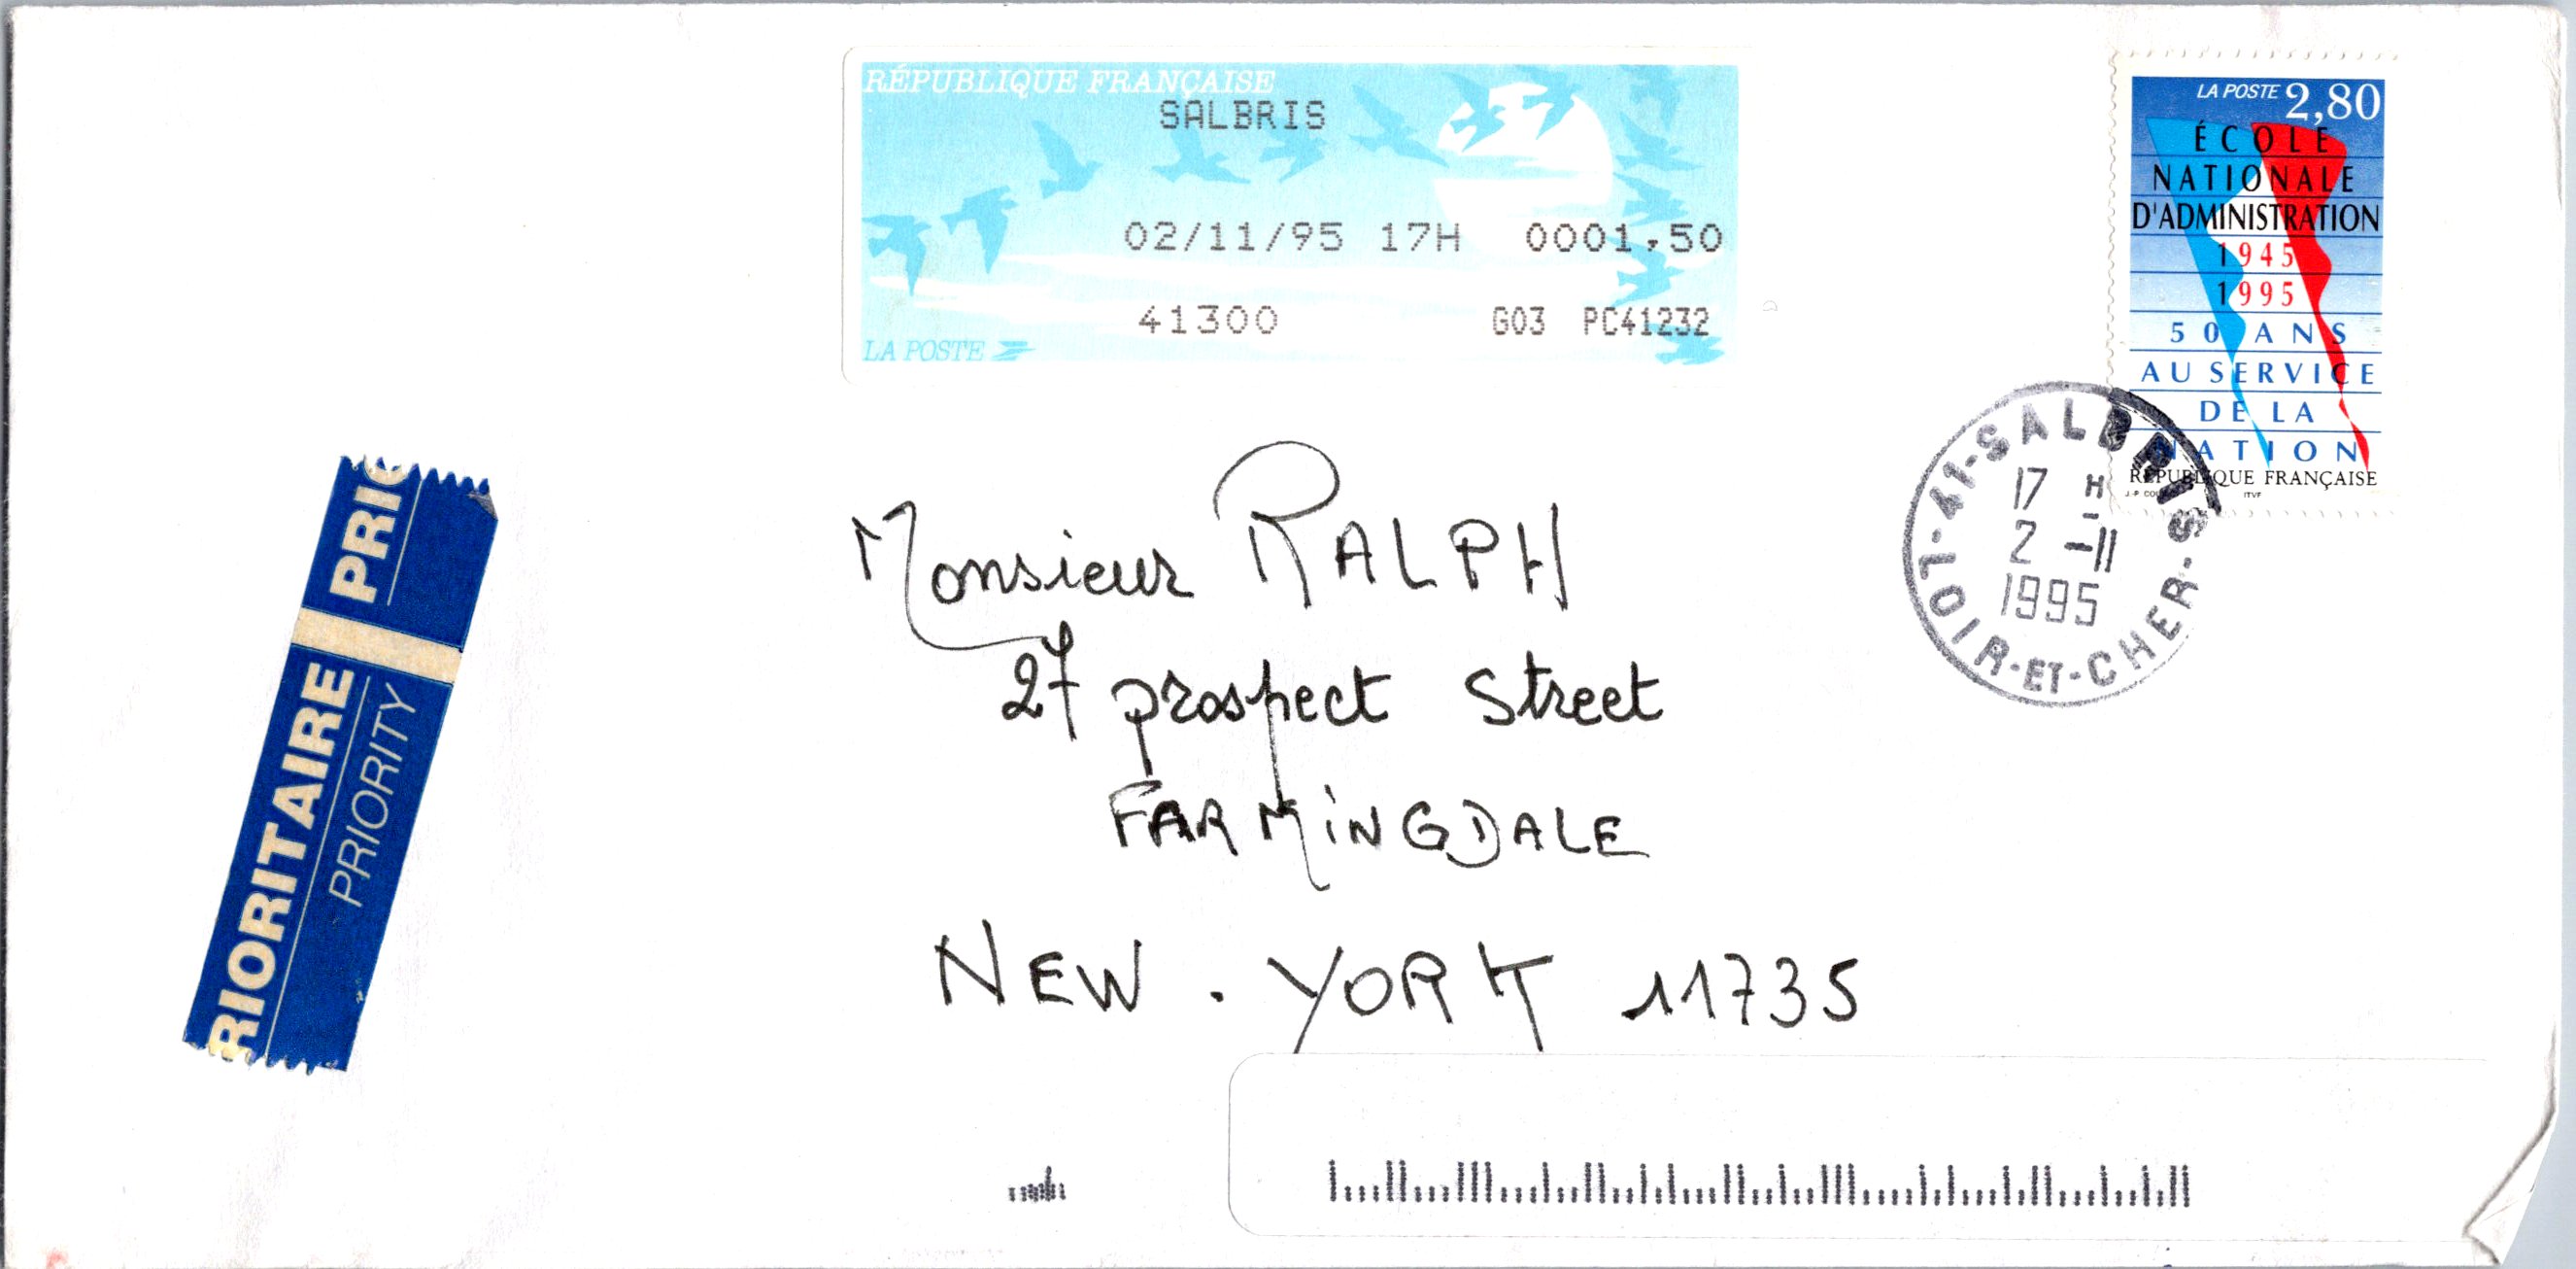 RÉPUBLIQUE FRANÇAISE
SALBRIS
02/11/95 17H 0001,50
41300 G03 PC41232
LA POSTE
LA POSTE 2,80
ÉCOLE
NATIONALE
D'ADMINISTRATION
1945
1995
50 ANS
AU SERVICE
DE LA
NATION
RÉPUBLIQUE FRANÇAISE
ITVF
41-SALBRIS
17 H
2 -11
1995
LOIR-ET-CHER
PRIO
PRIORITAIRE
PRIORITY
Monsieur RALPH
27 prospect Street
FARMiNGDALE
NEW . YORK 11735